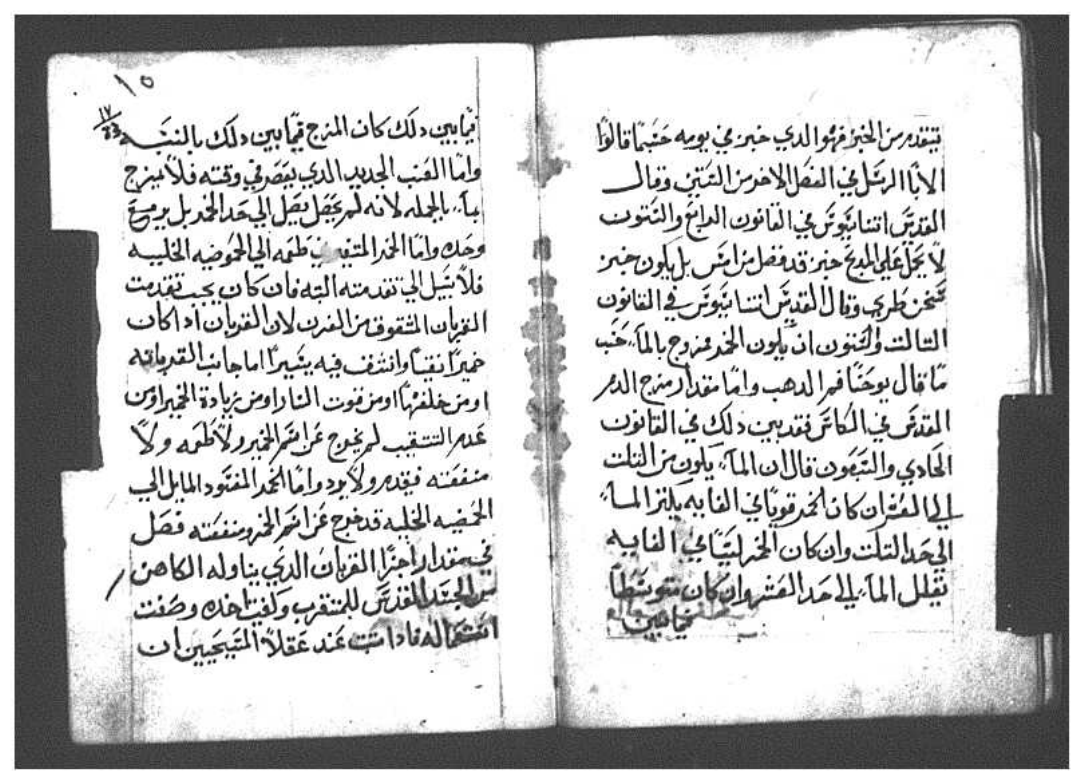 يتقدم من الخبز فهوا الدي خبز في يومه حسبما قالوا
الابا الرسل في الفصل الاخر من الستين وقال
القديس اتناسيوس في القانون الرابع والستون
لا يجل على المدبح خبز قد فضل من امس بل يكون خبز
سخن طري وقال القديس اتناسيوس في القانون
التالت والخنون ان يكون الخمر ممزوج بالماء حسب
ما قال يوحنا فم الدهب واما مقدار مزج الدم
المقدس في الكاس فقد بين دلك في القانون
الحادي والتسعون قال ان الماء يكون من التلت
الي العشر ان كان الخمر قويا في الغايه يكتر الماء
الي حد التلت وان كان الخمر لينا في الغايه
يقلل الماء الي حد العشر وان كان متوسطا
فيما بين
١٥
١٧
23
فيما بين دلك كان المزج فيما بين دلك بالنسبه
واما العنب الجديد الدي يعصر في وقته فلا يمزج
بماء بالجمله لانه لم يصل الي حد الخمر بل يرفع
وحده واما الخمر المتغير طعمه الي الحموضيه الخليه
فلا سبيل الي تقدمته البته فان كان يجب تقدمت
القربان المشقوف من الفرن لان القربان ادا كان
خميرا نقيا وانشف فيه يسيرا اما جانب القربانه
او من خلفها او من قوت النار او من زيادة الخمير اومن
عدم التتقيب لم يخرج عن اسم الخبز ولا طعمه ولا
منفعته فيقدم ولا يرد واما الخمر المفسود المايل الي
الحمضيه الخليه قد خرج عن اسم الخمر ومنفعته فصل
في مقدار اجزا القربان الدي يناوله الكاهن
من الجسد المقدس للمتقرب وكيف ياخده وصفت
اشتماله فادا تبت عند عقلا المسيحيين ان